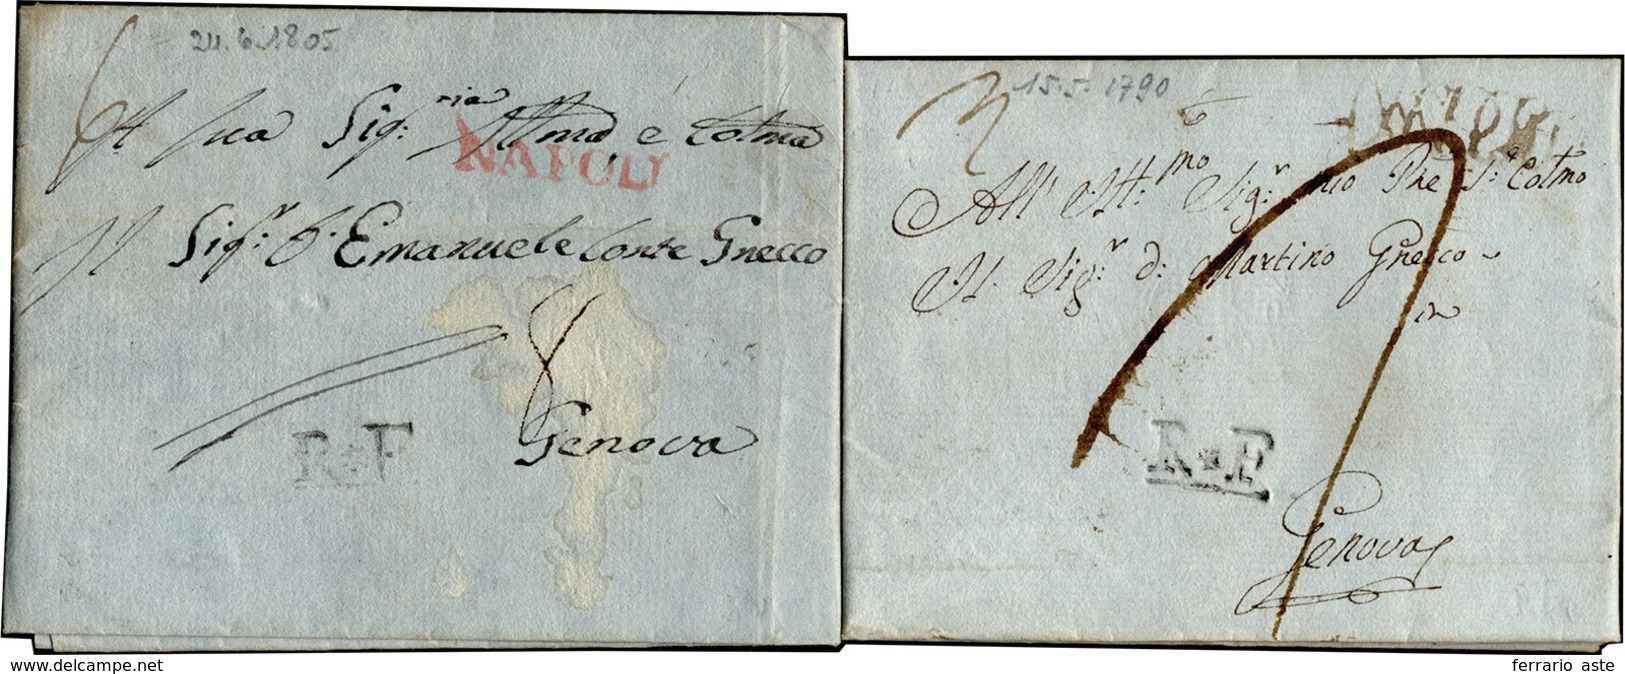 24.6.1805
A Sua Sig:ria Illma, e Colma
NAPOLI
Il Sig:r D. Emanuele Conte Gnecco
8
Genova
R*F
15.5.1790
All' Ill:mo Sig:r mio Pne S:e Colmo
Il Sig:r d: Martino Gnecco
in
R*F
Genova
ferrario aste